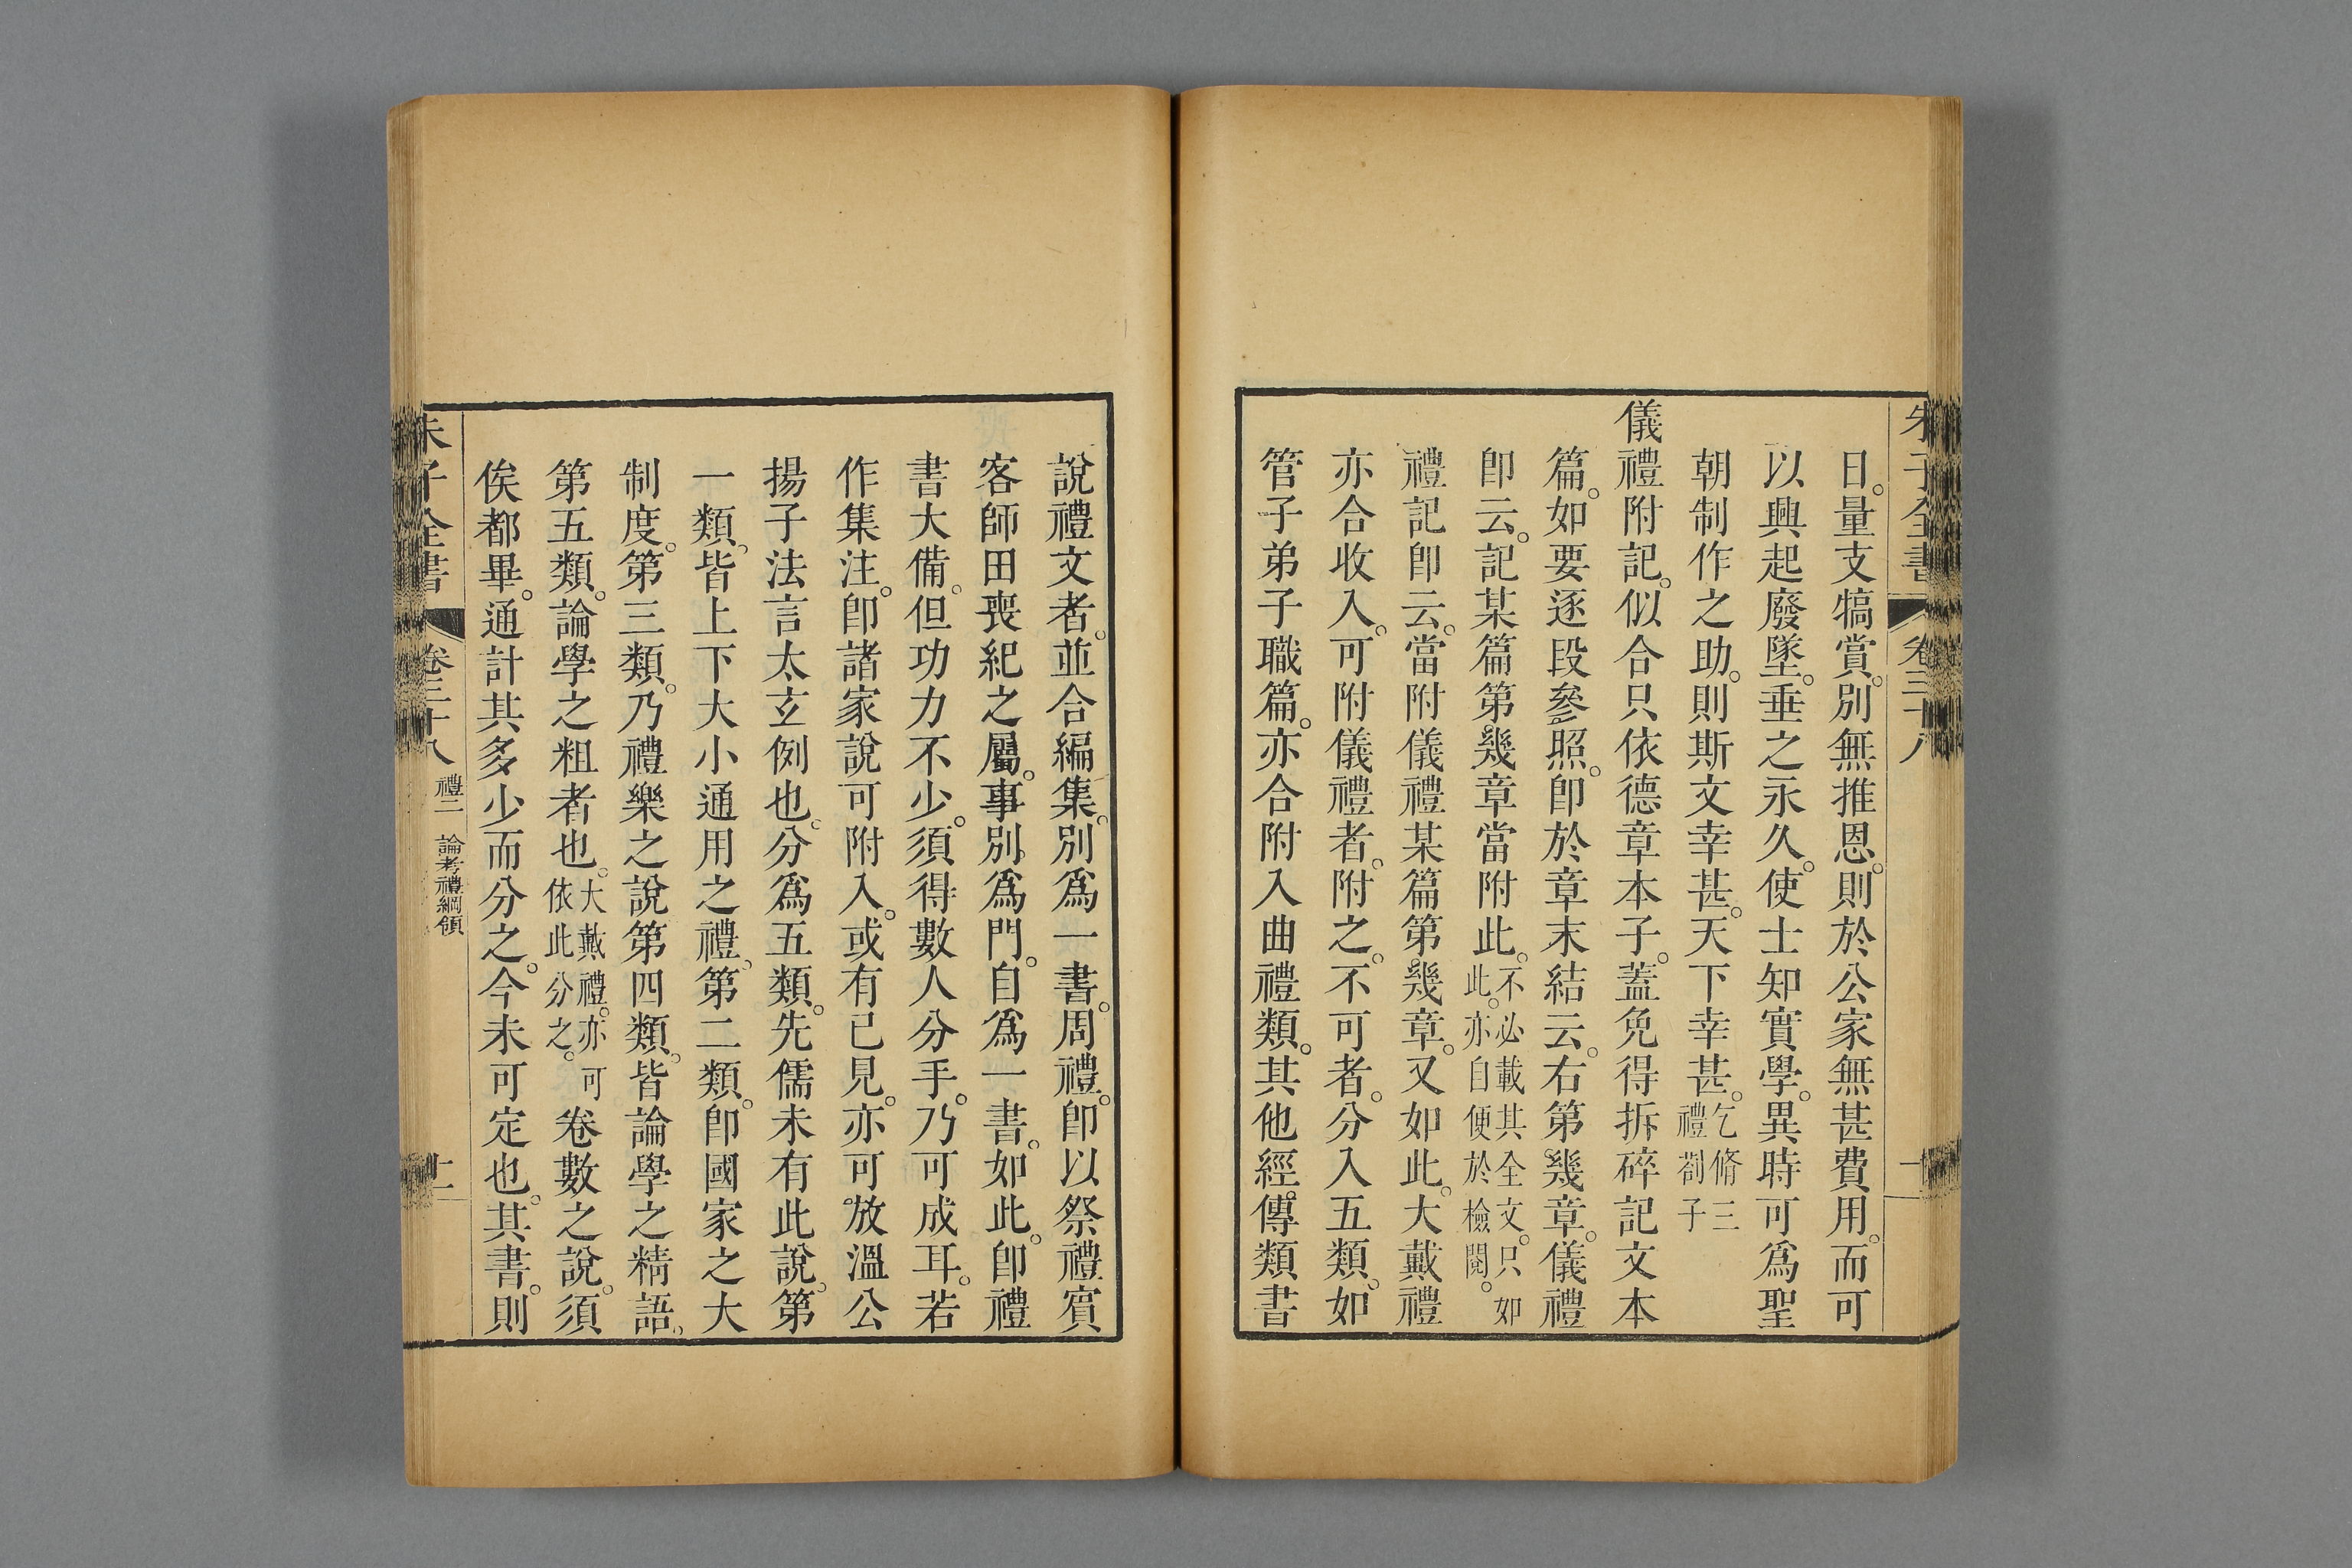 朱子全書 卷三十八
日。量支犒賞。別無推恩。則於公家無甚費用。而可
以興起廢墜。垂之永久。使士知實學。異時可爲聖
朝制作之助。則斯文幸甚。天下幸甚。乞脩三禮劄子
儀禮附記。似合只依德章本子。蓋免得拆碎記文本
篇。如要逐段參照。卽於章末結云。右第幾章。儀禮
卽云。記某篇第幾章當附此。不必載其全文。只如此。亦自便於檢閱。
禮記卽云。當附儀禮某篇第幾章。又如此。大戴禮
亦合收入。可附儀禮者。附之。不可者。分入五類。如
管子弟子職篇。亦合附入曲禮類。其他經傳類書
說禮文者。並合編集。別爲一書。周禮。卽以祭禮賓
客師田喪紀之屬。事別爲門。自爲一書。如此。卽禮
書大備。但功力不少。須得數人分手。乃可成耳。若
作集注。卽諸家說可附入。或有已見。亦可放溫公
揚子法言太玄例也。分爲五類。先儒未有此說。第
一類。皆上下大小通用之禮。第二類。卽國家之大
制度。第三類。乃禮樂之說第四類。皆論學之精語。
第五類。論學之粗者也。大戴禮。亦可依此分之。卷數之說。須
俟都畢。通計其多少而分之。今未可定也。其書。則
朱子全書 卷三十八 禮二 論考禮綱領 十一